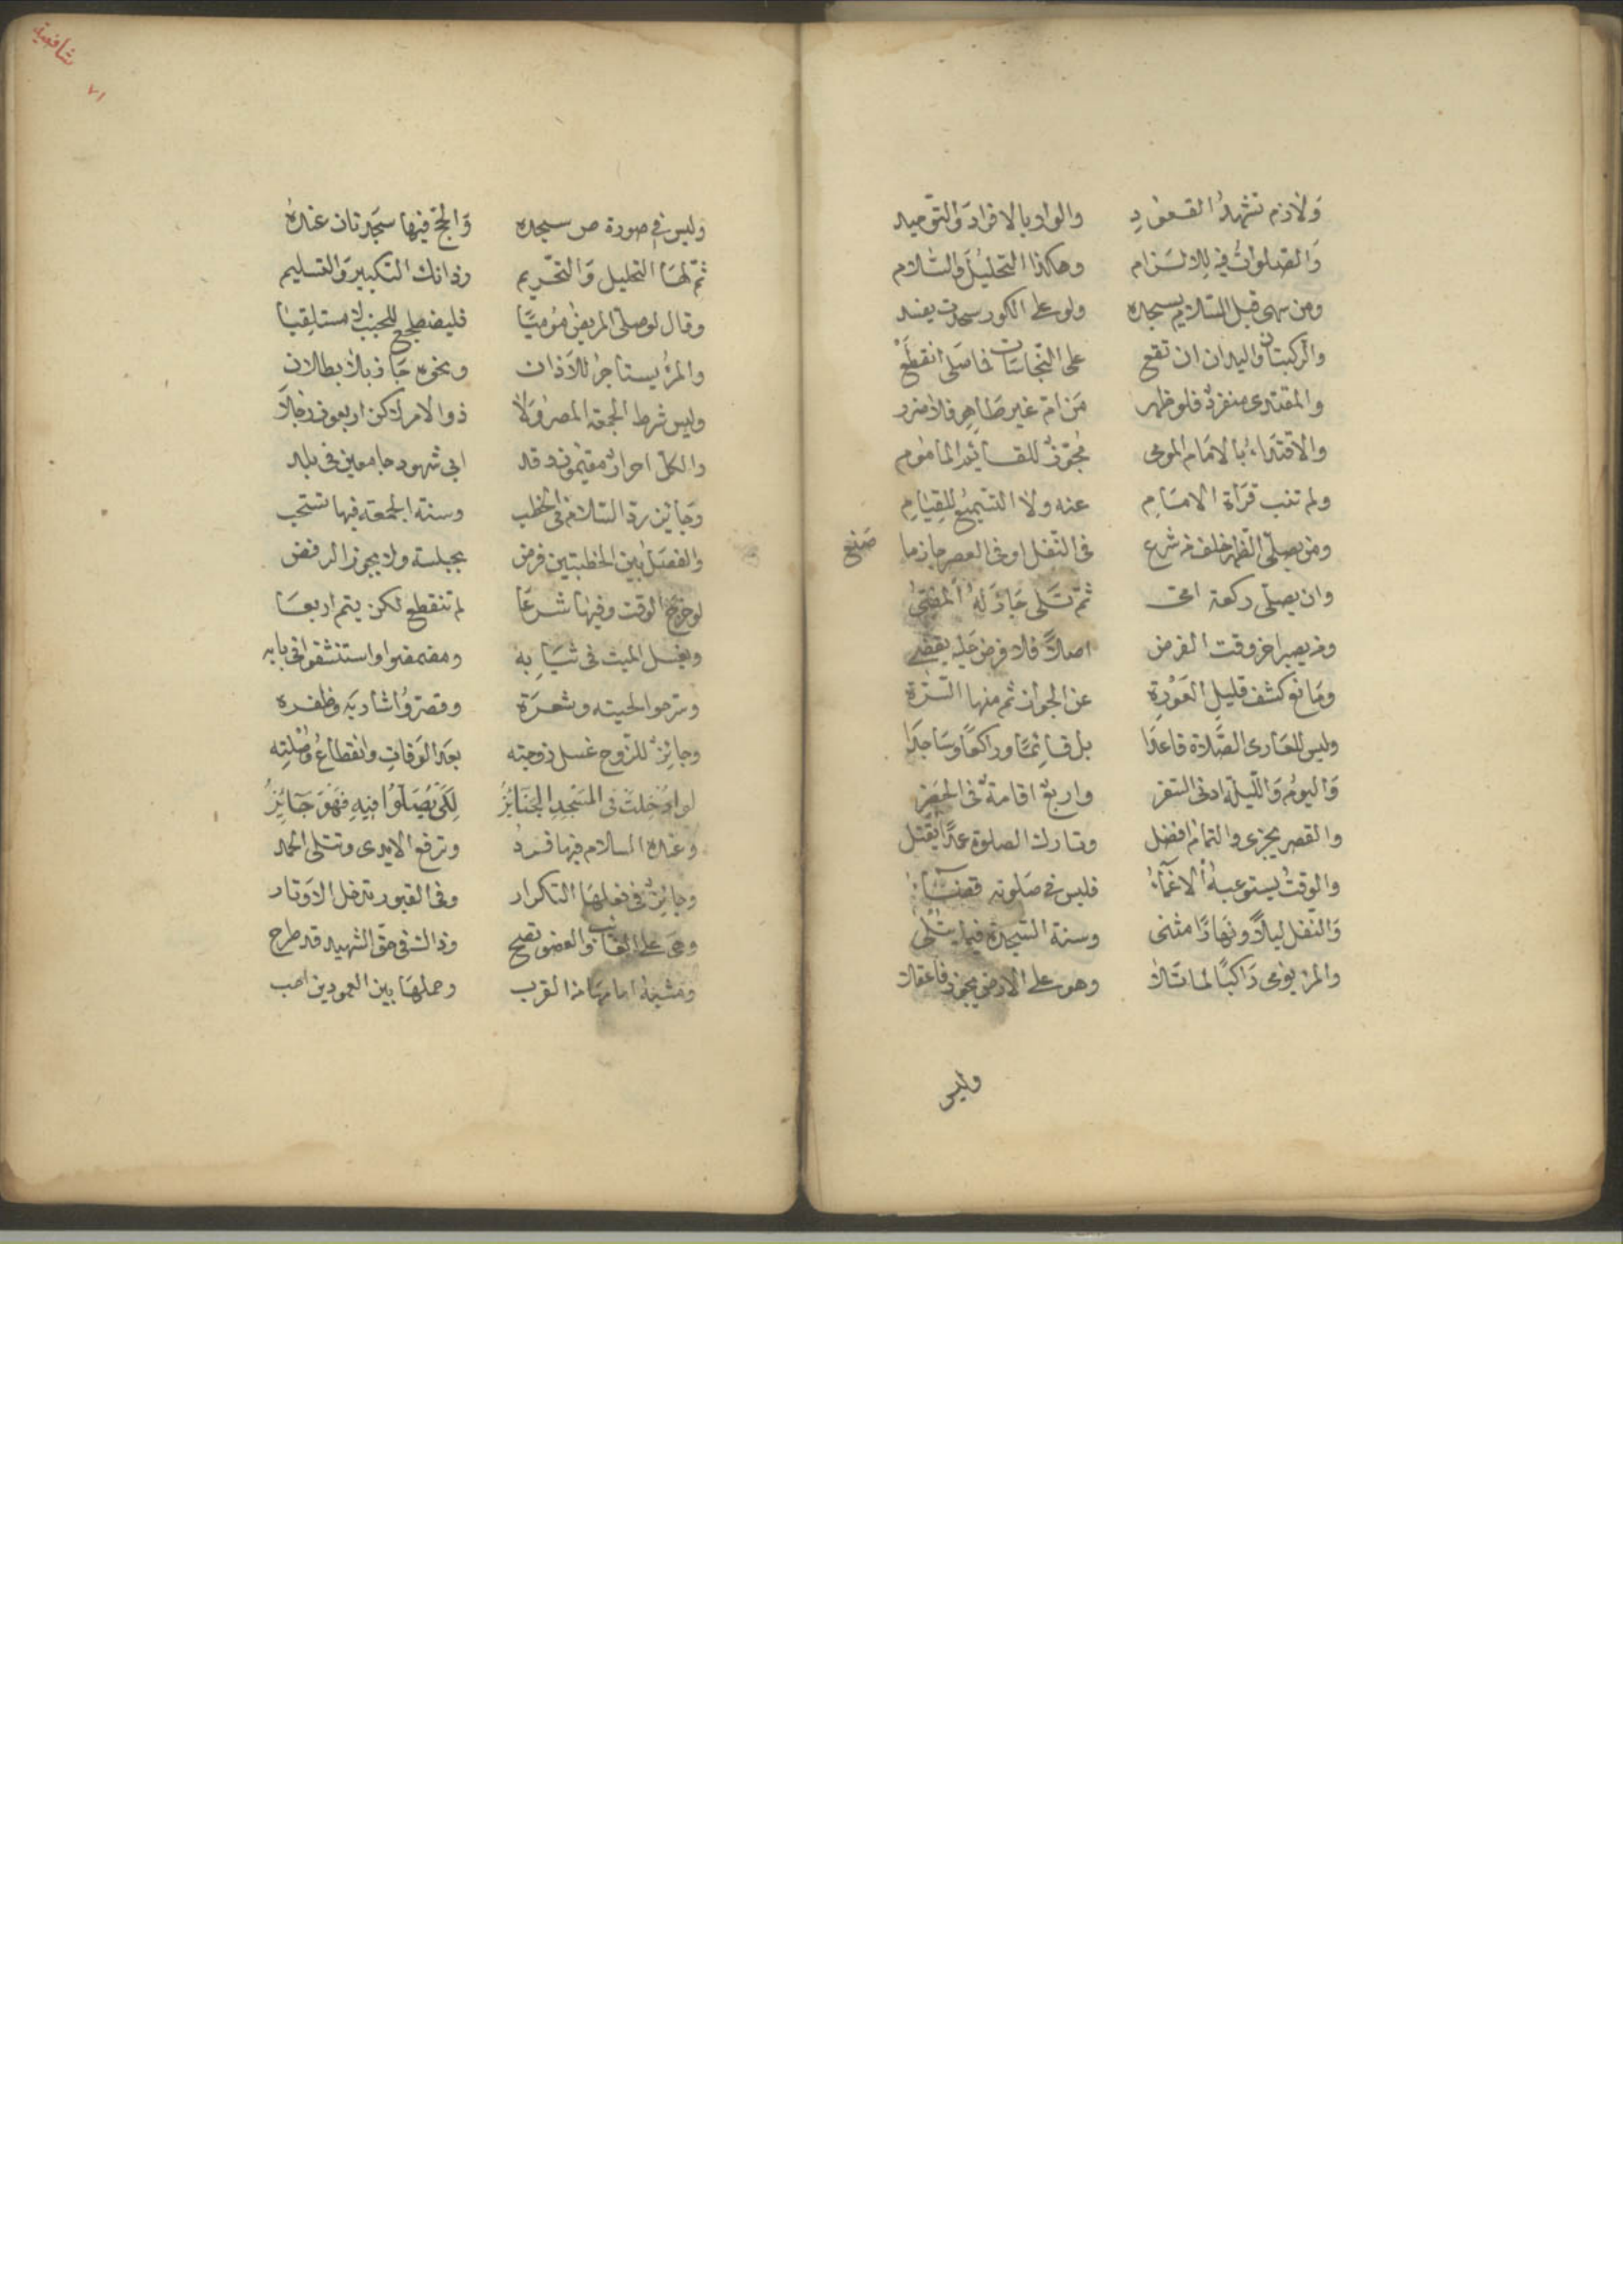 ولازم تشهد القعود والواو بالافراد والتوحيد
والصلوات فيه بالالتزام وهكذا التحليل والسلام
ومن سهى قبل السلام يسجد ولو على الكور سجدت يفسد
والركبتان واليدان ان تقع على النجاسات فاصلى انقطع
والمقتدى منفرد فلو ظهر من ام غير طاهر فلا ضرر
والاقتداء بالامام المومى مجوز للقائم المأموم
ولم تنب قرأة الامام عنه ولا التسميع للقيام
ومن يصلى الظهر خلف من شرع فى النفل او فى العصر جاز ما صنع
وان يصلى ركعة ثم تلى جاز له
ومن يصر اخر وقت الفرض اصلا فلا فرض عليه يقضى
ومانع كشف قليل العورة عن الجواز ثم منها السرة
وليس للعارى الصلاة قاعدا بل قائما وراكعا وساجدا
واليوم والليلة ادنى السفر واربع اقامة فى الحضر
والقصر يجزى والتمام افضل وتارك الصلوة عمدا يقتل
والوقت يستوعبه الاغماء فليس فى صلوته قضاء
والنفل ليلا ونهارا مثنى وسنة السجدة فيما يتلى
والمرء يومى راكبا لما تلا وهو على الارض يجوز فاعقلا
وليس
شافعية
٧١
وليس فى صورة ص سجده والحج فيها سجدتان عنده
ثم لها التحليل والتحريم وذانك التكبير والتسليم
وقال لو صلى المريض موميا فليضطجع للجنب لا مستلقيا
والمرء يستاجر للاذان ونحوه جاز بلا بطلان
وليس شرط الجمعة المصر ولا ذو الامر لكن اربعون رجلا
والكل احرار مقيمون وقد ابى شهود جامعين فى بلد
وجائز رد السلام فى الخطب وسنة الجمعة فيها تستحب
والفصل بين الخطبتين فرض بجلسة ولا يجوز الرفض
لو خرج الوقت وفيها شرعا لم تنقطع لكن يتم اربعا
ويغسل الميت فى ثيابه ومضمضوا واستنشقوا فى بابه
وسرحوا لحيته وشعره وقصروا شاربه وظفره
وجائز للزوج غسل زوجته بعد الوفات وانقطاع وصلته
لو ادخلت فى المسجد الجنائز لكى يصلوا فيه فهو جائز
وعنده السلام فيها فرد وترفع الايدى وتتلى الحمد
وجائز فى فعلها التكرار وفى القبور تدخل الاوتار
وهى على الغائب والعضو تصح وذالك فى حق الشهيد قد طرح
ومشيه امامها من القرب وحملها بين العمودين احب